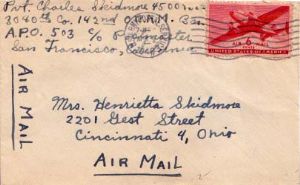 Pvt. Charles Skidmore
3040th Co. 142nd
A.P.O. 503 c/o Postmaster
San Francisco, California
AIR MAIL
6¢
UNITED STATES OF AMERICA
Mrs. Henrietta Skidmore
2201 Gest Street
Cincinnati 4, Ohio
AIR MAIL